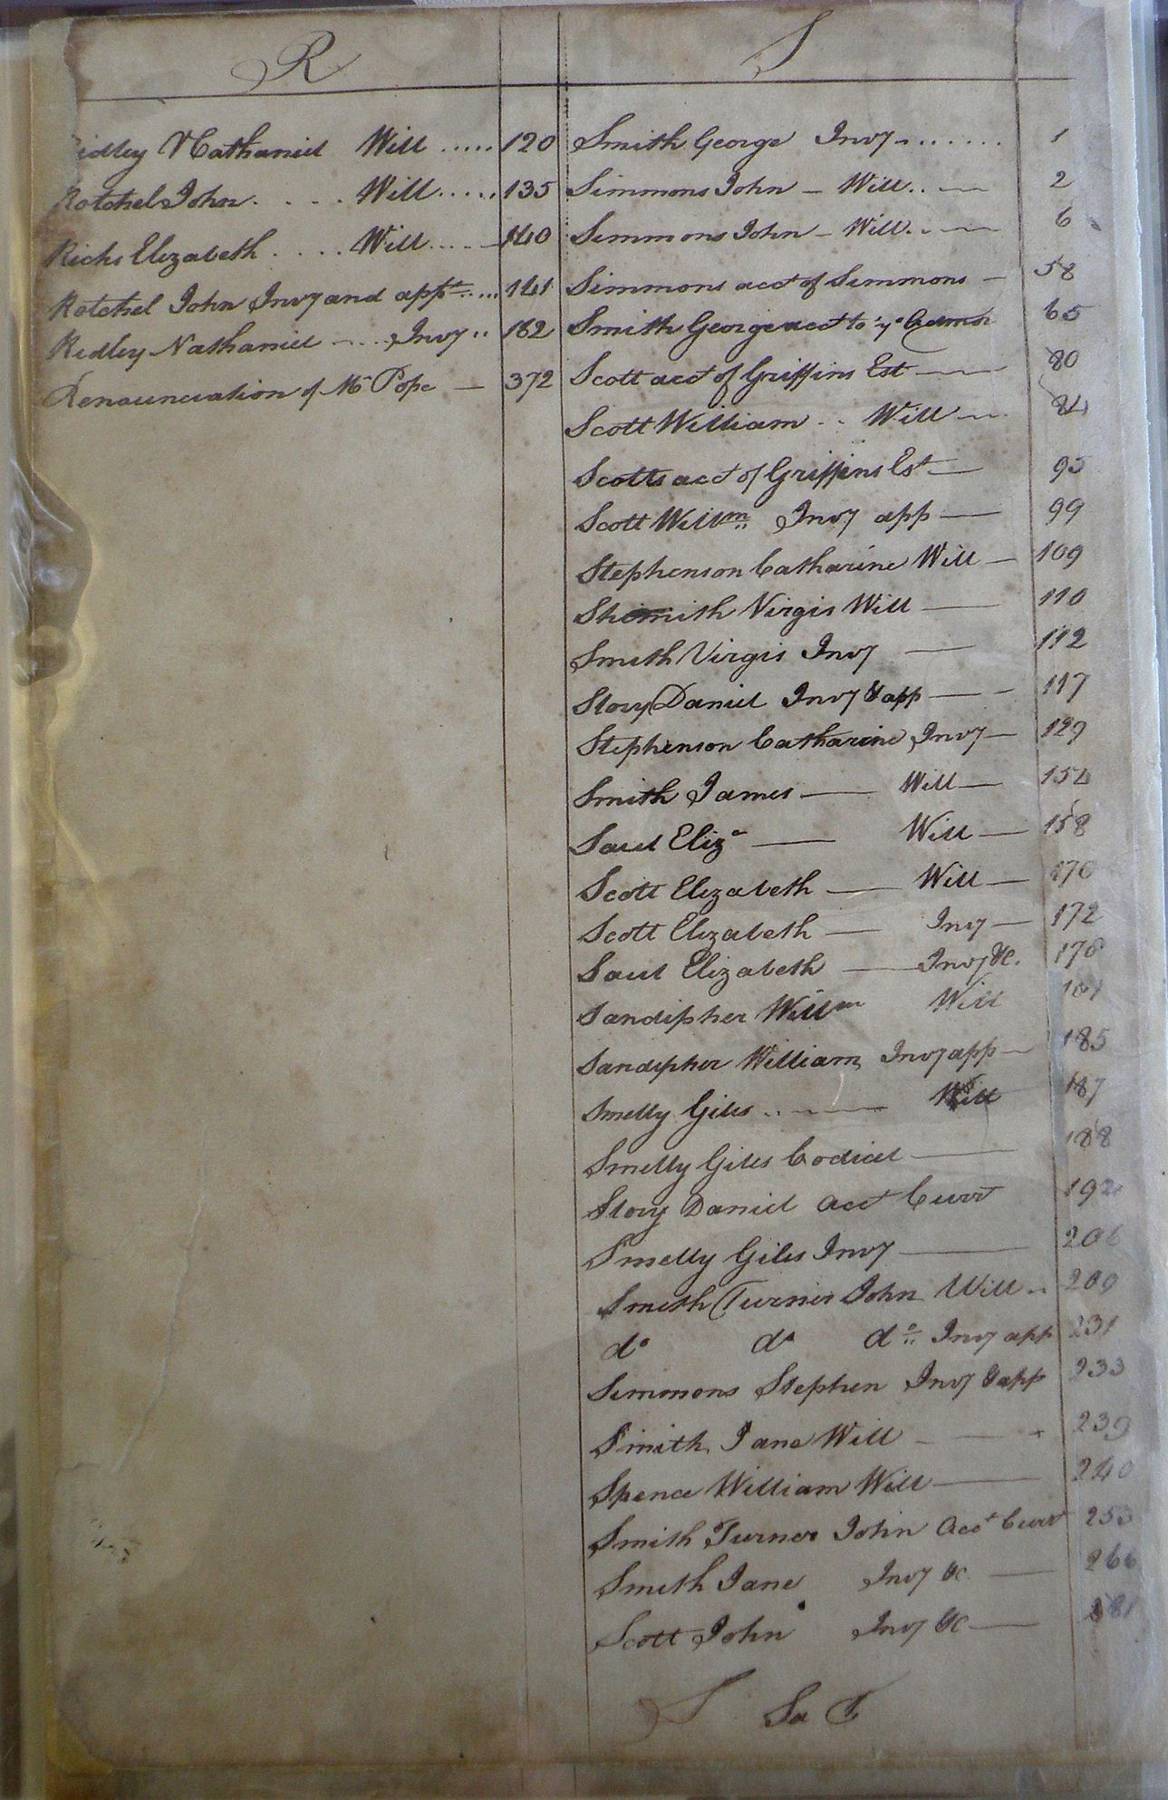 R
Ridley Nathaniel Will ..... 120
Rotchel John. . . . . Will ..... 135
Ricks Elizabeth . . . . Will ..... 140
Rotchel John Invy and appt ..... 141
Ridley Nathaniel ..... Invy .. 162
Renounciation of Mr Pope — 372
S
Smith George Invy ....... 1
Simmons John — Will .. — 2
Simmons John — Will .. — 6
Simmons acct of Simmons — 58
Smith George acct to ye Admor 65
Scott acct of Griffins Est — 80
Scott William .. Will — 84
Scotts acct of Griffins Est — 95
Scott Willm Invy app — 99
Stephenson Catharine Will — 109
Smith Virgis Will — 110
Smith Virgis Invy — 112
Story Daniel Invy & app — 117
Stephenson Catharine Invy — 129
Smith James — Will — 152
Saul Eliza — Will — 158
Scott Elizabeth — Will — 170
Scott Elizabeth — Invy — 172
Saul Elizabeth — Invy &c. 176
Sandipher Willm Will 181
Sandipher William Invy app — 185
Smelly Giles .. — Will 187
Smelly Giles Codicil — 188
Story Daniel acct Currt 192
Smelly Giles Invy — 206
Smith Turner John Will .. 209
do do do Invy app 231
Simmons Stephen Invy & app 233
Smith Jane Will — 239
Spence William Will — 240
Smith Turner John acct Currt 253
Smith Jane Invy &c — 266
Scott John Invy &c — 281
S Sa